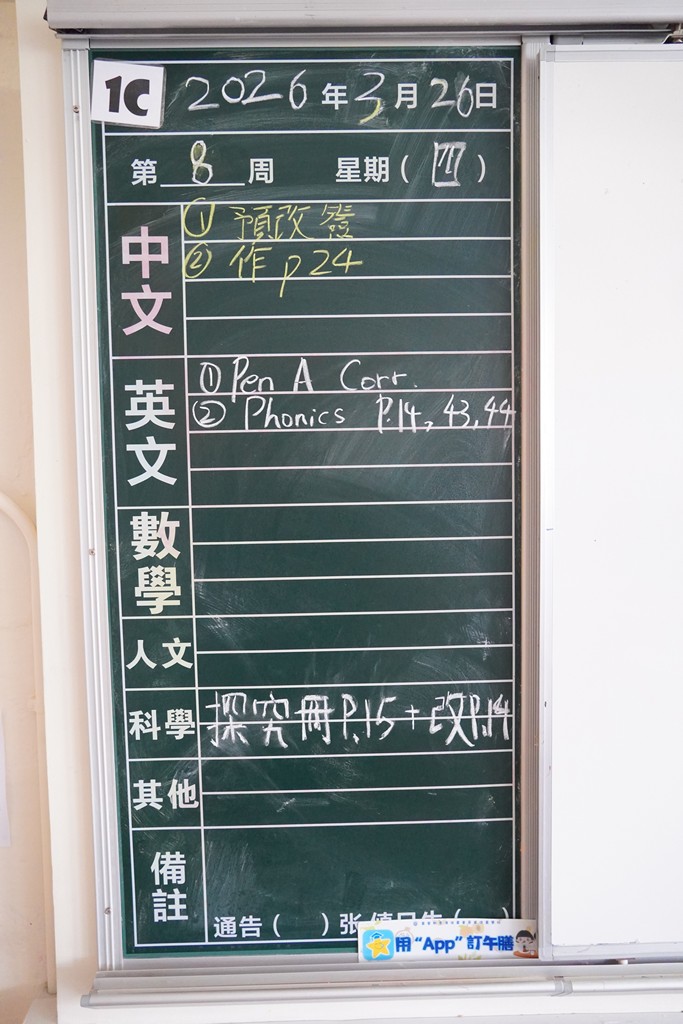 1C 2026年3月26日
第8周 星期(四)
中文
① 預改簽
② 作 p24
英文
① Pen A Corr.
② Phonics P.14, 43, 44
數學
人文
科學
探究冊 P.15 + 改P.14
其他
備註
通告( )张
用“App”訂午膳